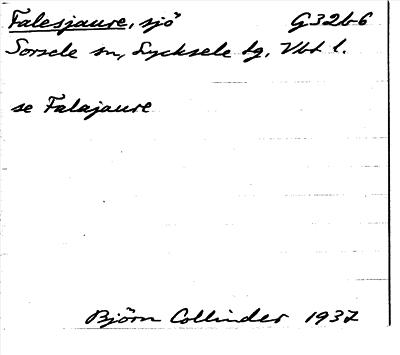 Falesjaure, sjö G32b6
Sorsele sn, Lycksele lg, Vbt l.
se Falajaure
Björn Collinder 1937